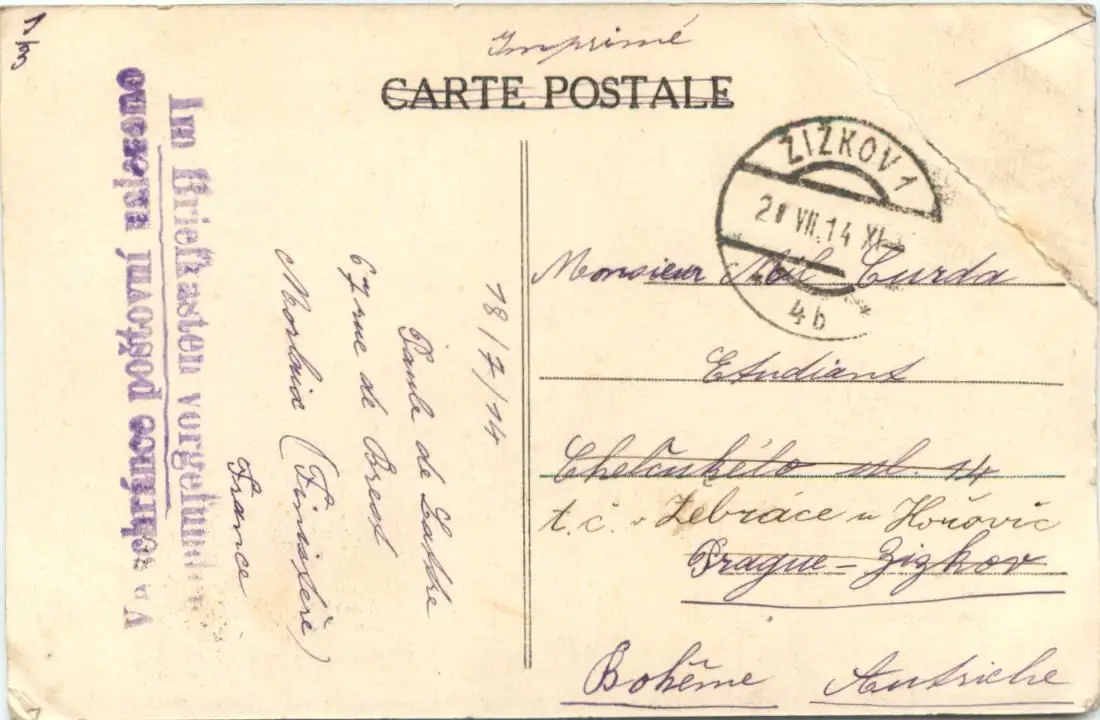 1/3
Imprimé
CARTE POSTALE
ŽIŽKOV 1
VII.14 XI
4b
Im Briefkasten vorgefunden
V schránce poštovní nalezeno
18/7/14
Paule de
67 rue de Brest
Morlaix (Finistère)
France
Monsieur Mil. Čurda
Etudiant
Chelčického ul. 14
t. č. v Žebráce u Hořovic
Prague - Zizkov
Bohême Autriche